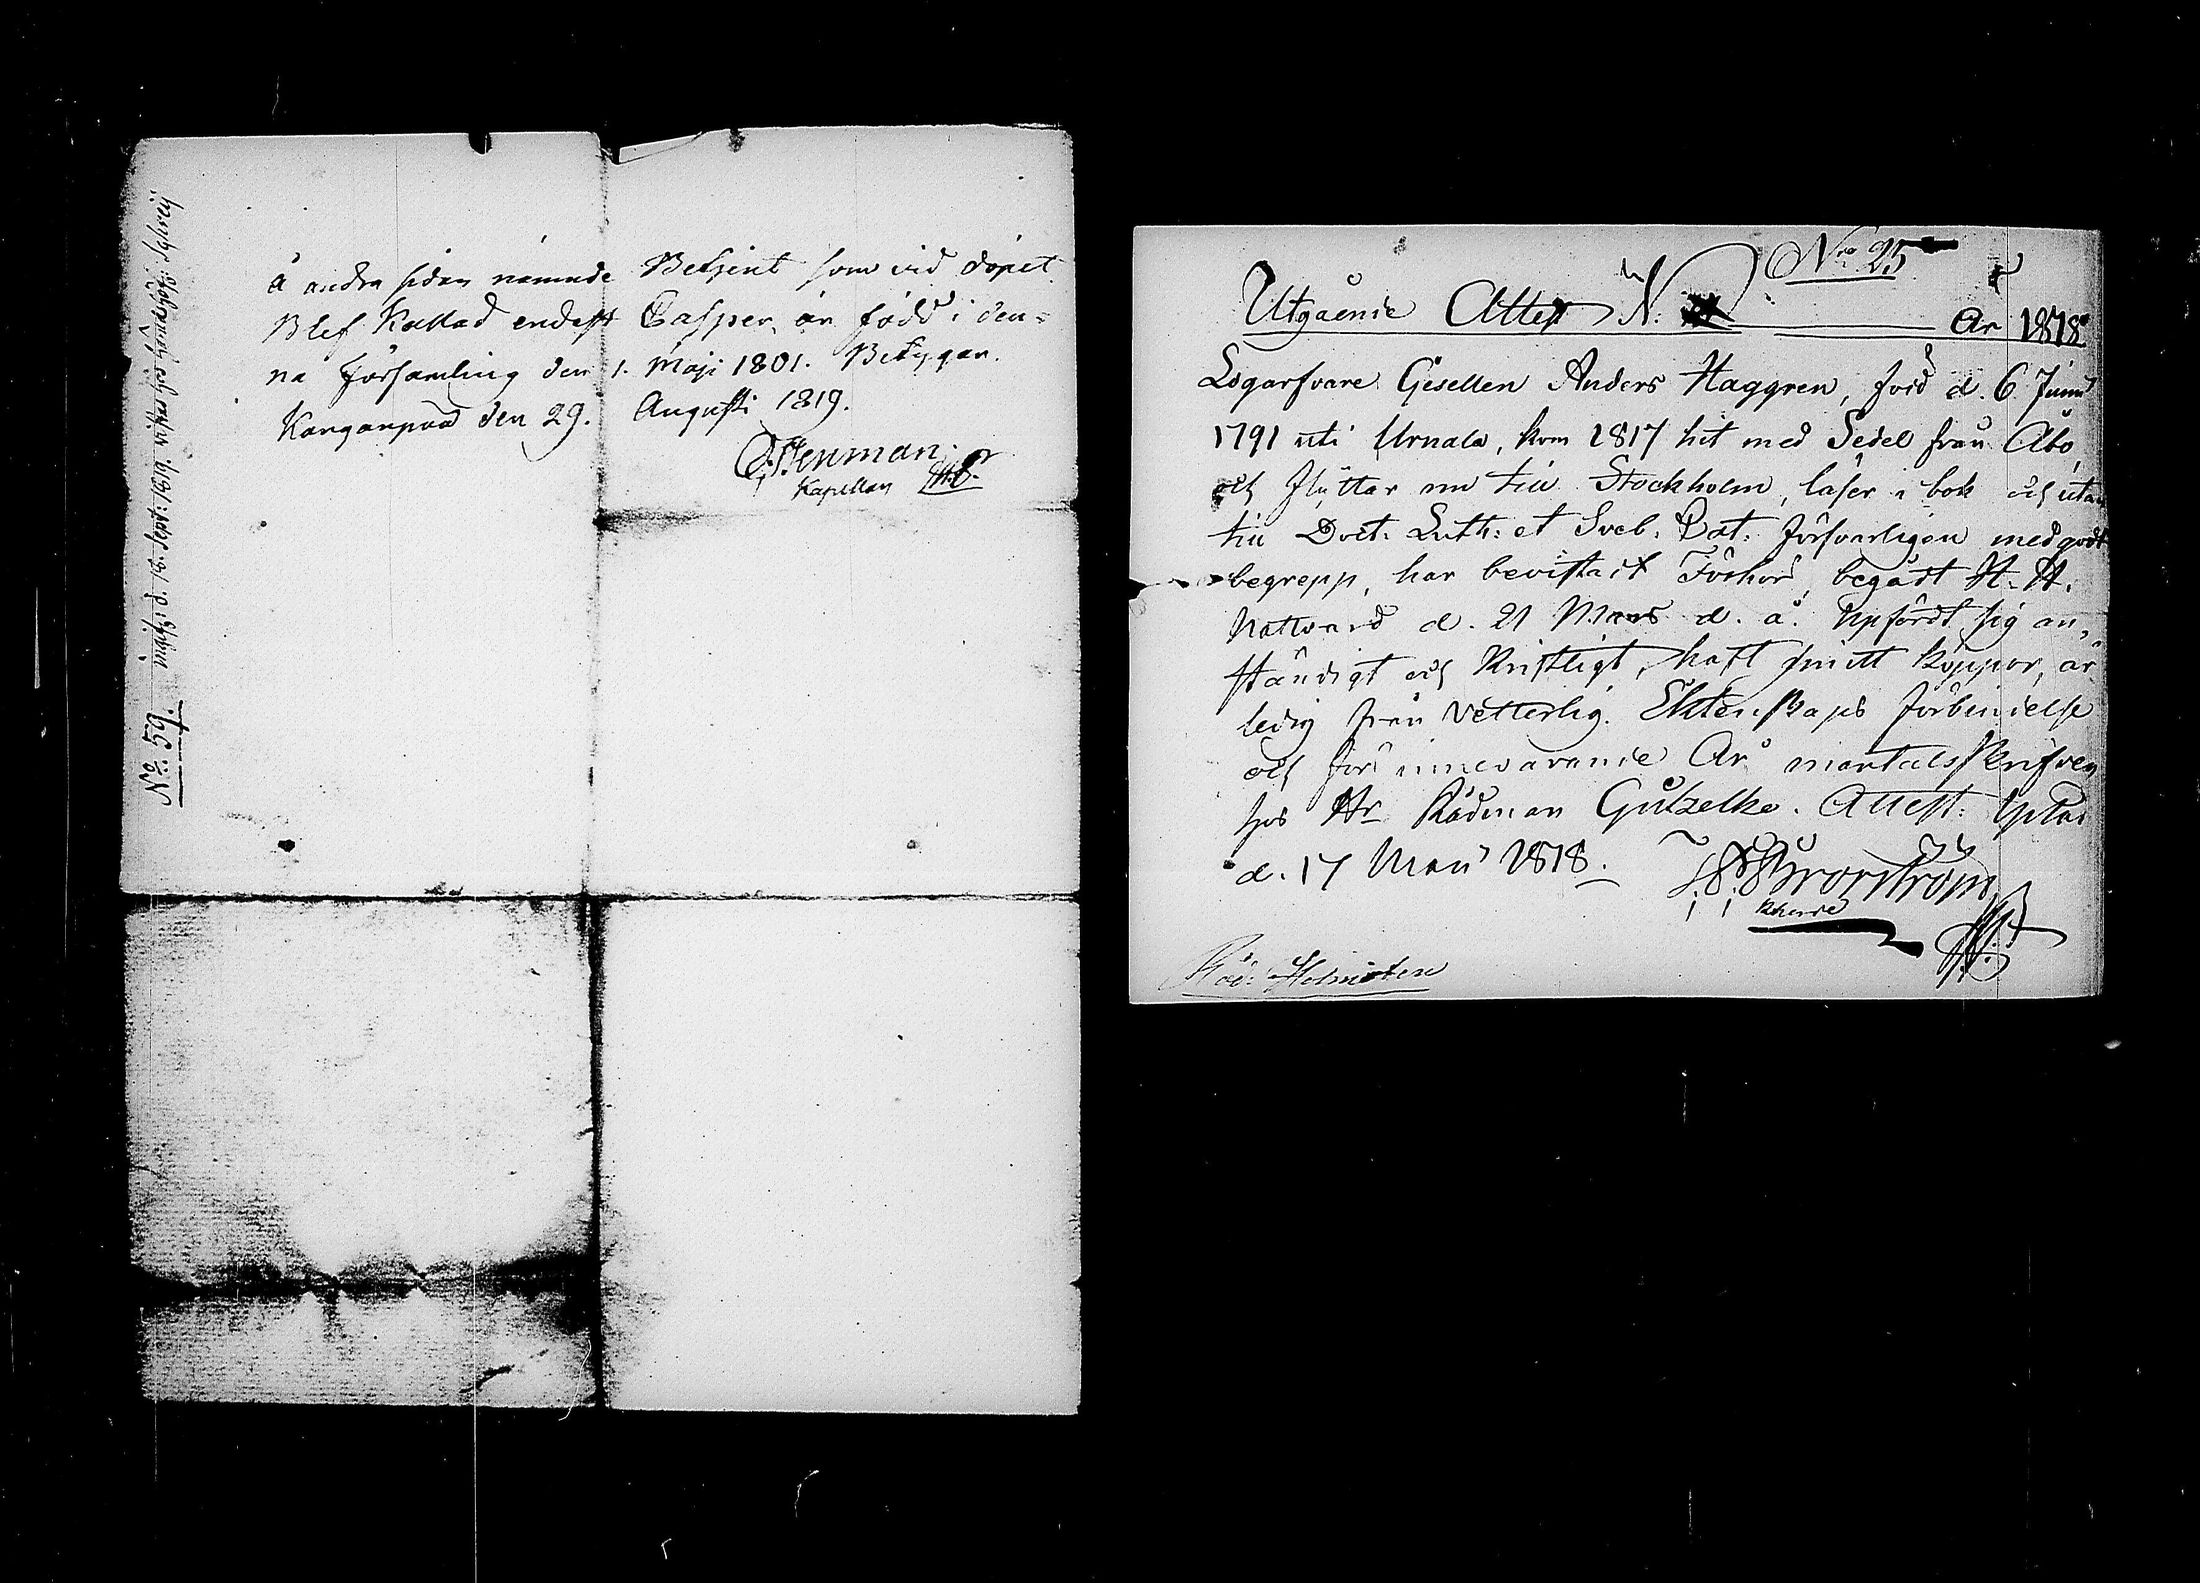 å andra sidan nämnde Betjent som vid döpet
Blef Kallad endast Casper, är född i den=
na Församling den 1. Maji 1801. Betygar.
Kangan den 29. Augusti 1819.
Stenman
Kapellan
No: 59. d. 18. Sept: 1819.
Nro 25
Utgående Attest N: År 1818
Logarfvare Gesellen Anders Haggren, född d. 6 Junii
1791 uti Urnala, kom 1817 hit med Sedel från Åbo,
och flyttar nu till Stockholm, läser i bok och utan
till Doct: Luth: et Sveb. Cat: försvarligen med godt
begrepp, har bevistadt Förhör, begådt H. H.
Nattvard d. 21 Mars d. å. Uppfördt sig an„
ständigt och Kristligt, haft smitt koppor, är
ledig från vetterlig. Ektenskaps förbindelse
och för innevarande År mantalsskrifven
hos Hr Rådman Gutzelke. Attest:
d. 17 Maii 1818.
Brorström
Råd: Holmsten